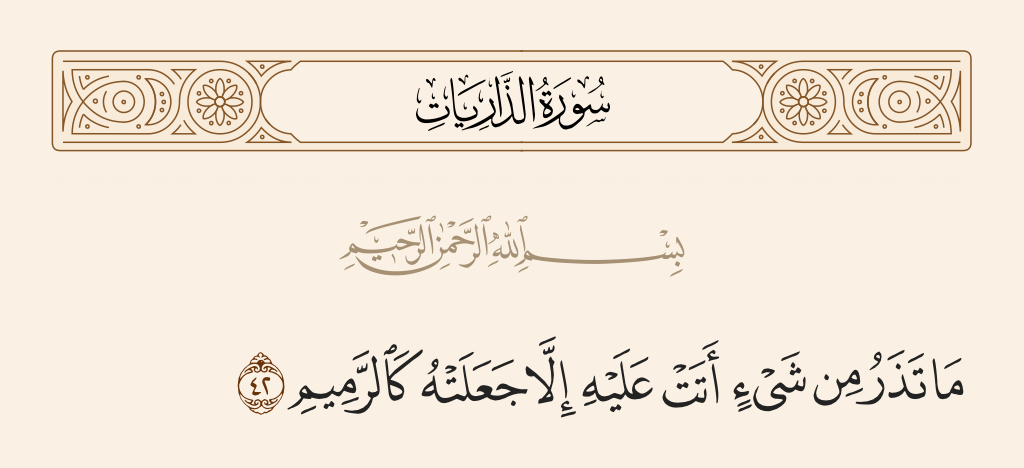 سُورَةُ الذَّارِيَاتِ
بِسْمِ ٱللَّهِ ٱلرَّحْمَٰنِ ٱلرَّحِيمِ
مَا تَذَرُ مِن شَىْءٍ أَتَتْ عَلَيْهِ إِلَّا جَعَلَتْهُ كَٱلرَّمِيمِ ٤٢